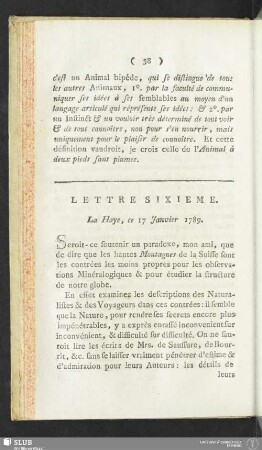 ( 38 )
c'est un Animal bipède, qui se distingue de tous
les autres Animaux, 1°. par la faculté de commu-
niquer ses idées à ses semblables au moyen d'un
langage articulé qui réprésente ses idées: & 2°. par
un Instinct & un vouloir très déterminé de tout voir
& de tout connoître, non pour s'en nourrir, mais
uniquement pour le plaisir de connoître. Et cette
définition vaudroit, je crois celle de l'Animal à
deux pieds sans plumes.
LETTRE SIXIEME.
La Haye, ce 17 Janvier 1789.
Seroit-ce soutenir un paradoxe, mon ami, que
de dire que les hautes Montagnes de la Suisse sont
les contrées les moins propres pour les observa-
tions Minéralogiques & pour étudier la structure
de notre globe.
En effet examinez les descriptions des Natura-
listes & des Voyageurs dans ces contrées: il semble
que la Nature, pour rendre ses secrets encore plus
impénétrables, y a exprès entassé inconvenient sur
inconvénient, & difficulté sur difficulté. On ne sau-
roit lire les écrits de Mrs. de Saussure, de Bour-
rit, &c. sans se laisser vraiment pénétrer d'estime &
d'admiration pour leurs Auteurs: les détails de
leurs
SLUB